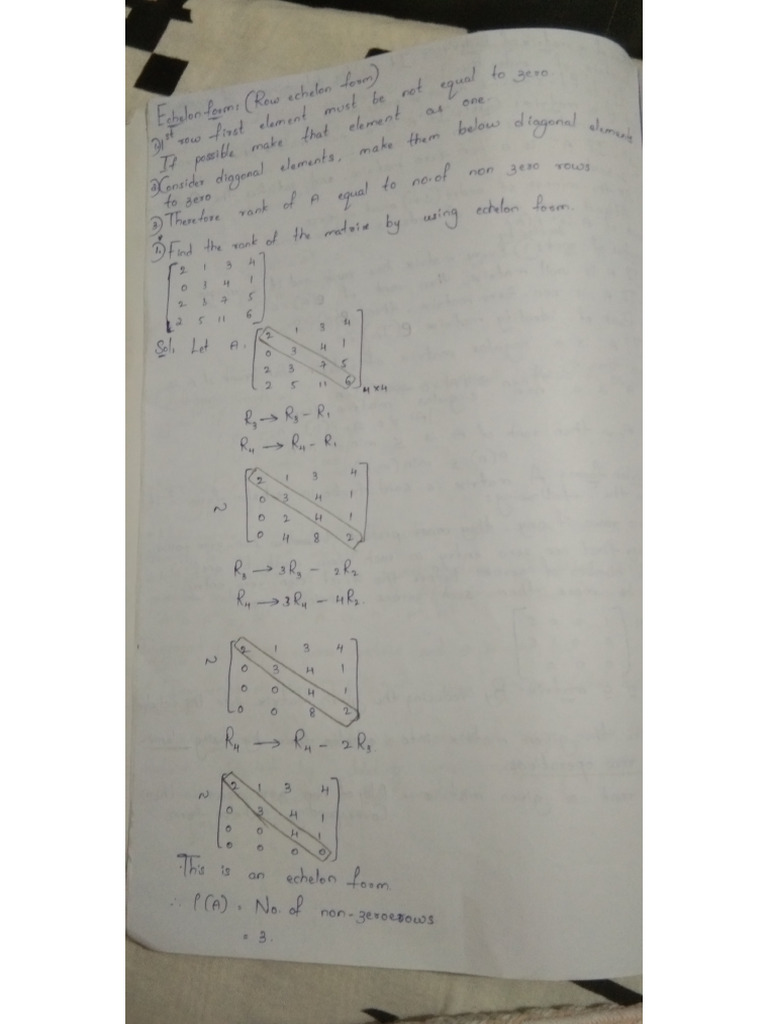 Echelon form: (Row echelon form)
1) 1st row first element must be not equal to zero.
If possible make that element as one.
2) Consider diagonal elements, make them below diagonal elements
to zero
3) Therefore rank of A equal to no. of non zero rows
1. Find the rank of the matrix by using echelon form.
2 1 3 4
0 3 4 1
2 3 7 5
2 5 11 6
Sol. Let A =
2 1 3 4
0 3 4 1
2 3 7 5
2 5 11 6
4×4
R3 → R3 - R1
R4 → R4 - R1
~
2 1 3 4
0 3 4 1
0 2 4 1
0 4 8 2
R3 → 3R3 - 2R2
R4 → 3R4 - 4R2.
~
2 1 3 4
0 3 4 1
0 0 4 1
0 0 8 2
R4 → R4 - 2R3
~
2 1 3 4
0 3 4 1
0 0 4 1
0 0 0 0
This is an echelon form.
∴ ρ(A) = No. of non-zeroerows
= 3.